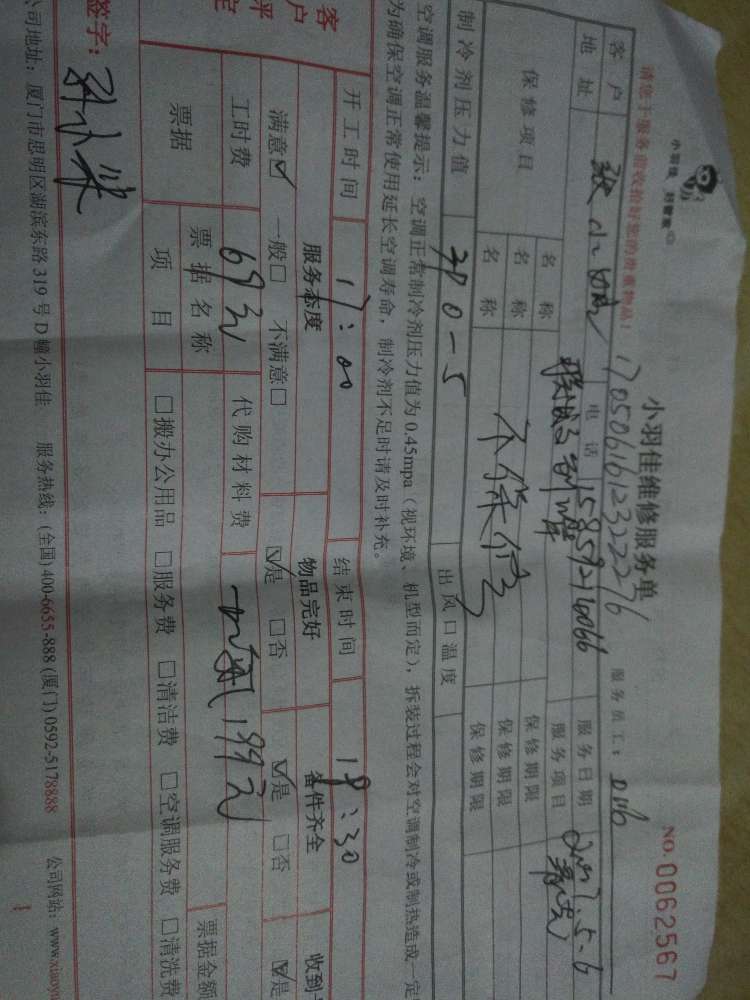 小羽佳 好管家
小羽佳维修服务单
NO.0062567
请您于服务前收拾好您的贵重物品!
170506161232276
服务员工:
客户
电话
15859216066
服务日期
2017.5.6
地址
服务项目
保修项目
名称
保修期限
名称
不保修
保修期限
名称
保修期限
制冷剂压力值
出风口温度
空调服务温馨提示:空调正常制冷剂压力值为0.45mpa(视环境、机型而定),拆装过程会对空调制冷或制热造成一定
为确保空调正常使用延长空调寿命,制冷剂不足时请及时补充。
开工时间
17:00
结束时间
18:30
客户
评定
服务态度
物品完好
备件齐全
收到
满意☑ 一般□ 不满意□
☑是 □否
☑是 □否
☑是
工时费
69元
代购材料费
199元
票据
票据名称
票据金额
项目
□搬办公用品 □服务费 □清洁费 □空调服务费 □清洗费
签字:
公司地址:厦门市思明区湖滨东路319号D幢小羽佳 服务热线:(全国)400-6655-888(厦门)0592-5178888 公司网站:www.xiaoyu